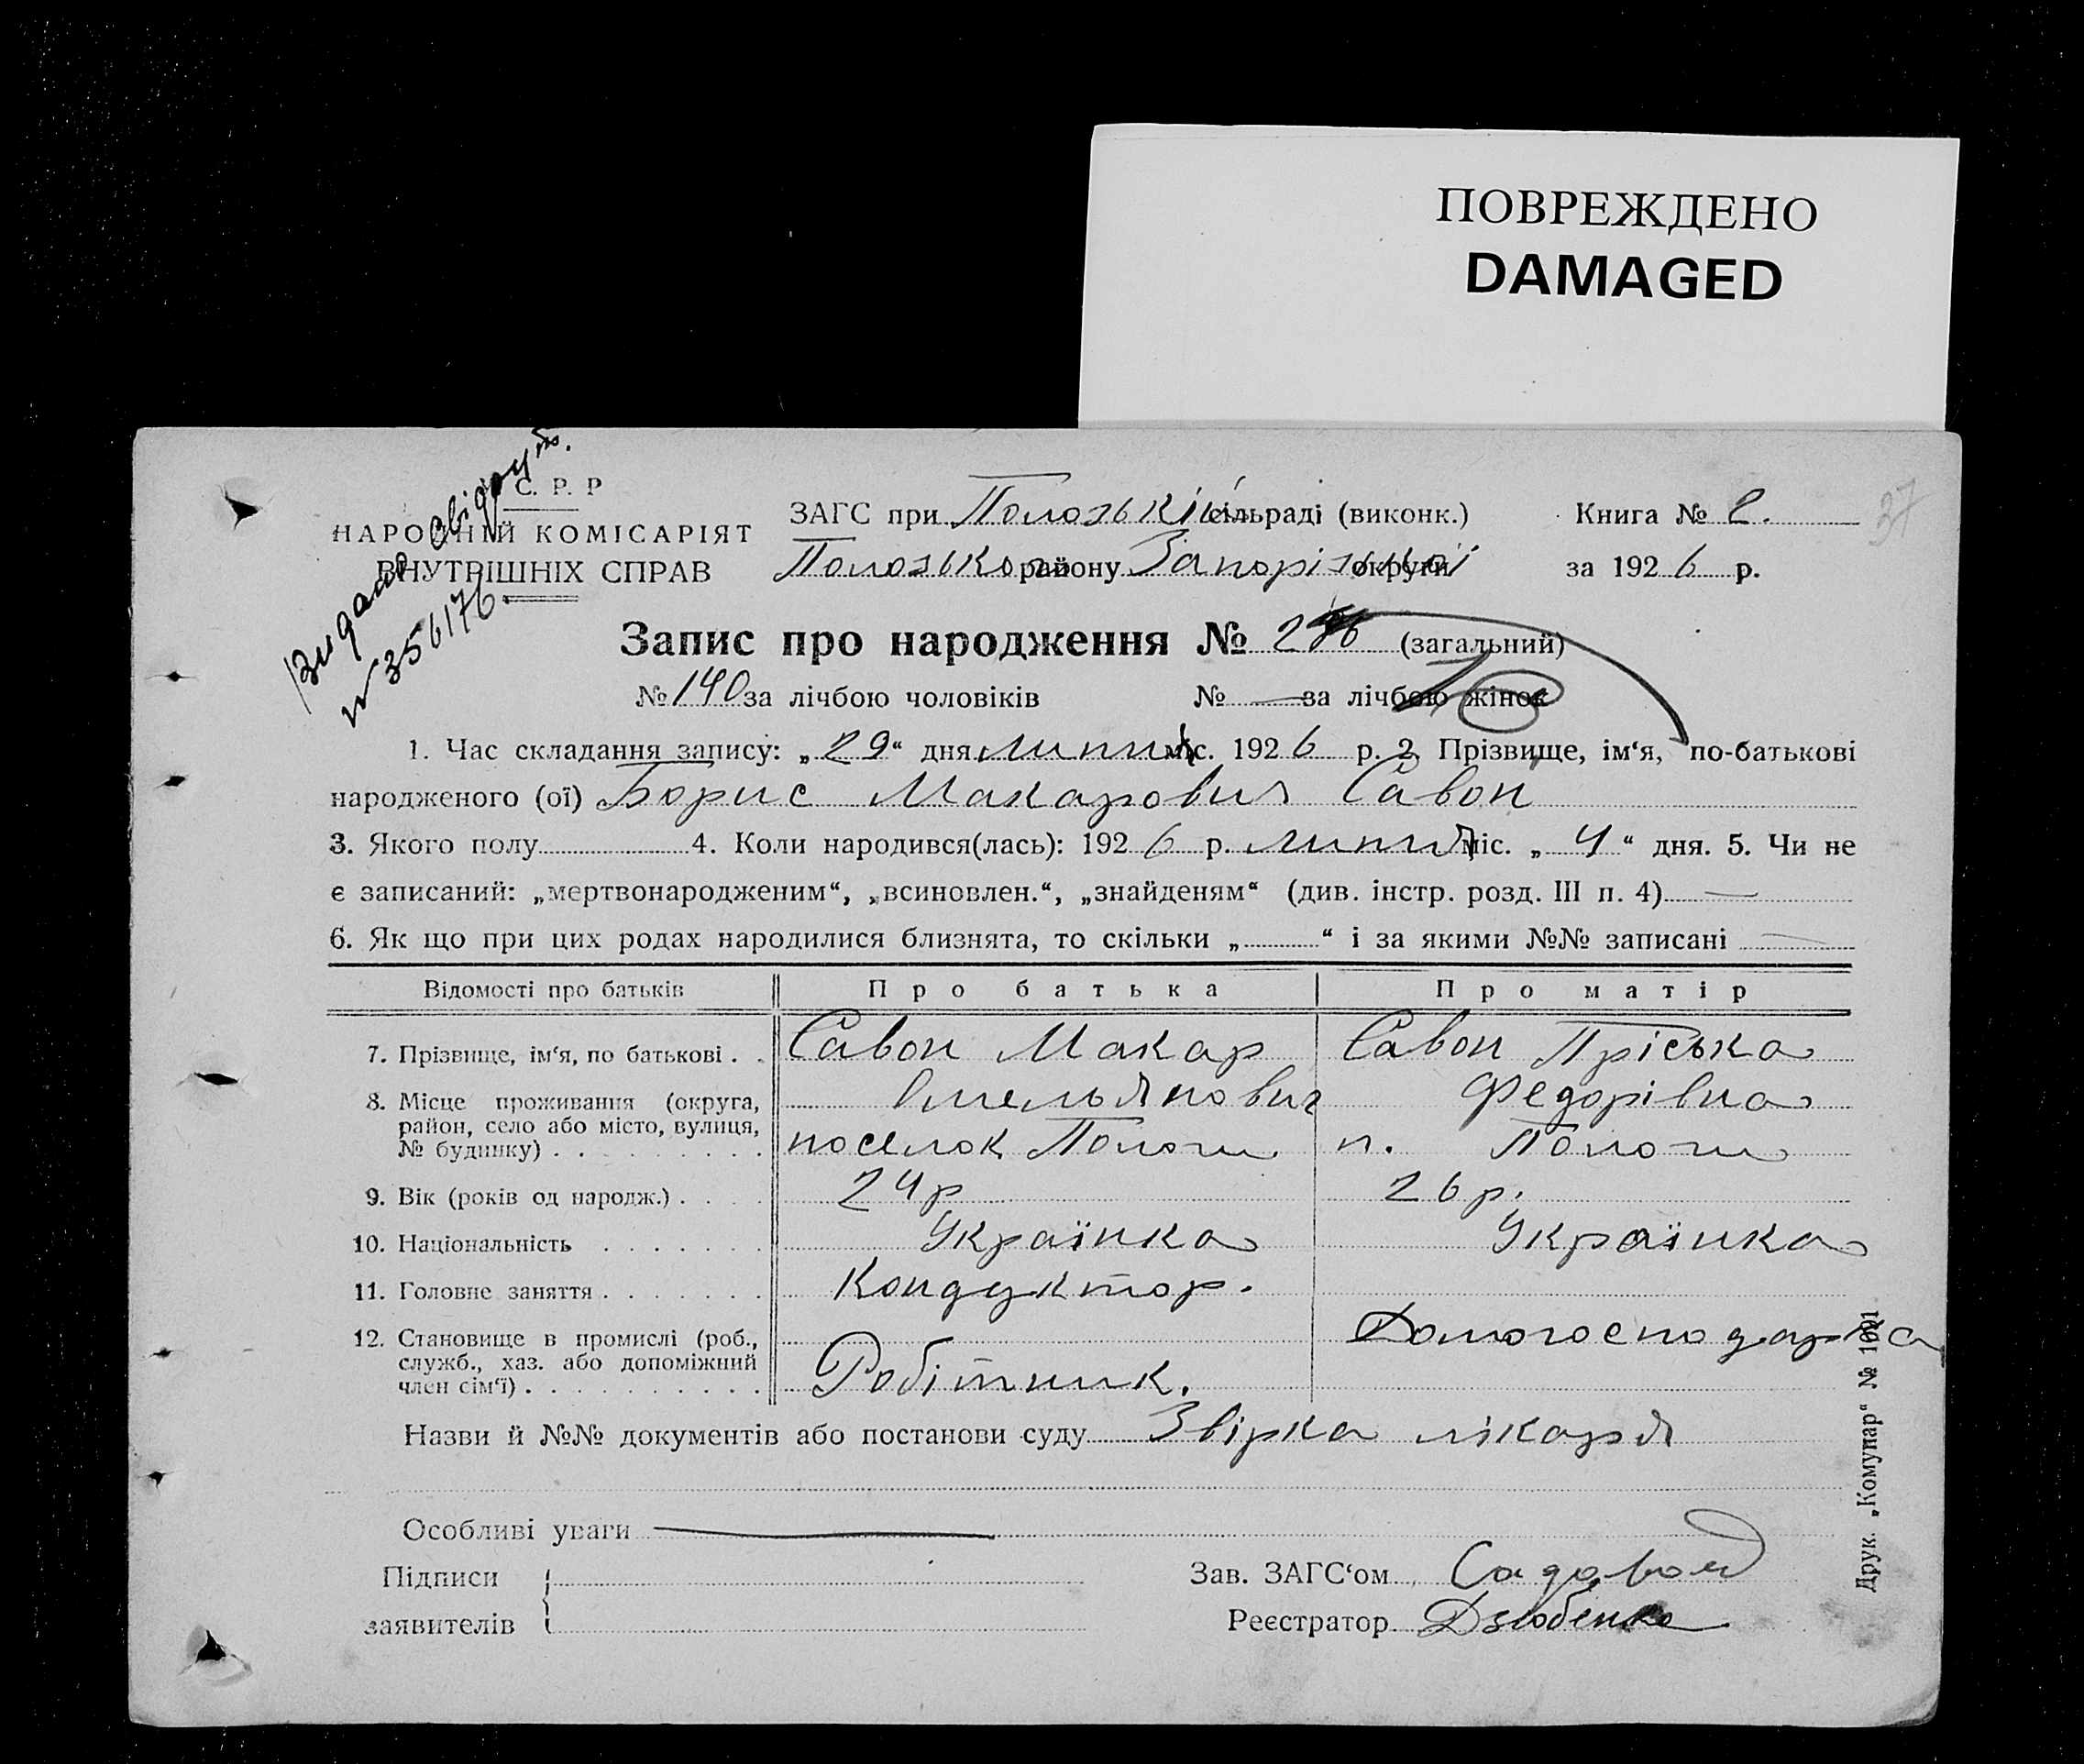 ПОВРЕЖДЕНО
DAMAGED
С. Р. Р
НАРОДНІЙ КОМІСАРІЯТ
ВНУТРІШНІХ СПРАВ
Видано свідоцтв.
№ 356176.
ЗАГС при Пологській сільраді (виконк.)
Пологського району Запорізької округи
Книга № 2.
за 1926 р.
37
Запис про народження № (загальний)
№ 140 за лічбою чоловіків № — за лічбою жінок
1. Час складання запису: „29“ дня липня міс. 1926 р. 2. Прізвище, ім‘я, по-батькові
народженого (ої) Борис Макарович Савон
3. Якого полу 4. Коли народився(лась): 1926 р. липня міс. „4“ дня. 5. Чи не
є записаний: „мертвонародженим“, „всиновлен.“, „знайденям“ (див. інстр. розд. III п. 4) —
6. Як що при цих родах народилися близнята, то скільки „ “ і за якими №№ записані —
Відомості про батьків Про батька Про матір
7. Прізвище, ім‘я, по батькові . . Савон Макар Савон Пріська
Омельянович Федорівна
8. Місце проживання (округа,
район, село або місто, вулиця,
№ будинку) . . . . . . . . . поселок Пологи п. Пологи
9. Вік (років од народж.) . . . . 24 р 26 р.
10. Національність . . . . . . . Українка Українка
11. Головне заняття . . . . . . . Кондуктор.
12. Становище в промислі (роб.,
служб., хаз. або допоміжний
член сім‘ї) . . . . . . . . . . Робітник. Домогосподарка
Назви й №№ документів або постанови суду Звірка лікаря
Особливі уваги —
Підписи
заявителів
Зав. ЗАГС‘ом
Реєстратор Дзюбенко
Друк. „Комунар“ № 1001